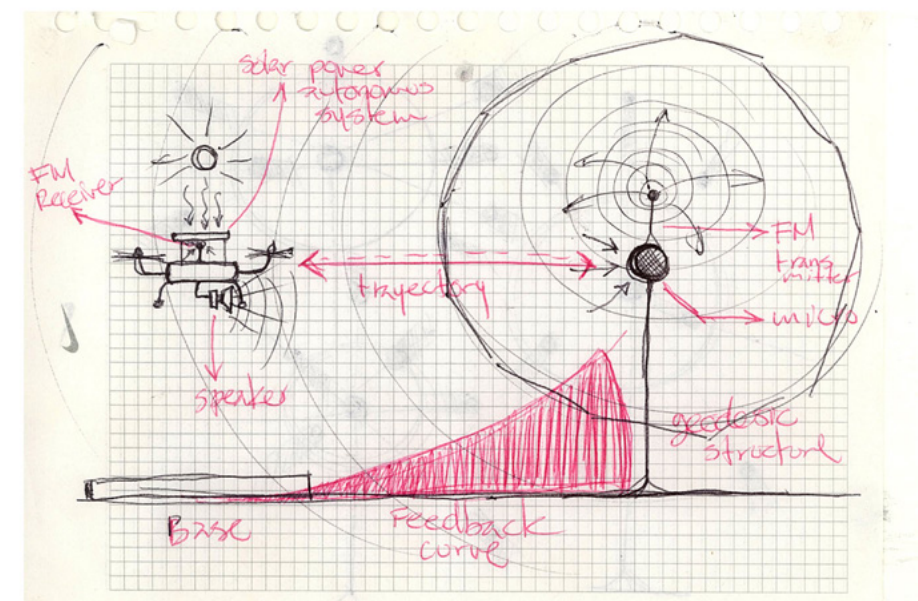 solar power
autonomus
system
FM
Receiver
FM
trans
mitter
trayectory
micro
speaker
geodesic
structure
Base
Feedback
curve